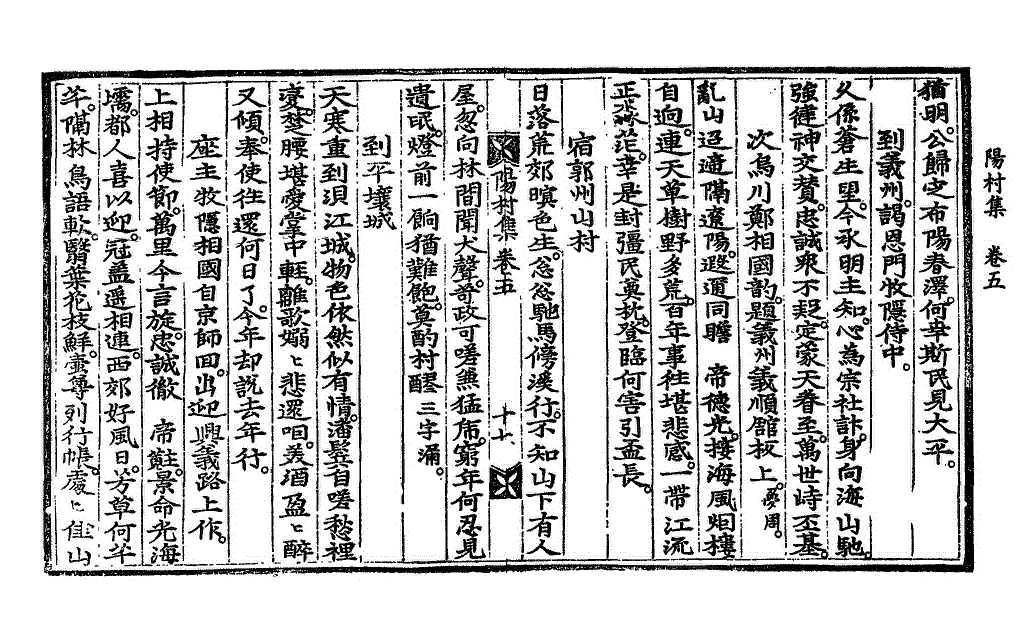 陽村集 卷五
猶明。公歸定布陽春澤。何幸斯民見大平。
到義州。謁恩門牧隱侍中。
久係蒼生望。今承明主知。心爲宗社計。身向海山馳。
強健神交贊。忠誠衆不疑。定蒙天眷至。萬世峙丕基。
次烏川鄭相國韵。題義州義順舘板上。夢周。
亂山迢遰隔遼陽。遐邇同瞻 帝德光。接海風烟樓
自迥。連天草樹野多荒。百年事往堪悲感。一帶江流
正淼茫。幸是封彊民奠枕。登臨何害引盃長。
宿郭州山村
日落荒郊暝色生。忩忩馳馬傍溪行。不知山下有人
陽村集 卷之五 十七
屋。忽向林間聞犬聲。苛政可嗟燕猛虎。窮年何忍見
遺氓。燈前一餉猶難飽。莫酌村醪 三字涌。
到平壤城
天寒重到浿江城。物色依然似有情。潘鬂自嗟愁裡
變。楚腰堪愛掌中輕。離歌嫋〻悲還咽。美酒盈〻醉
又傾。奉使往還何日了。今年却說去年行。
座主牧隱相國自京師回。出迎興義路上作。
上相持使節。萬里今言旋。忠誠徹 帝黈。景命光海
壖。都人喜以迎。冠盖遥相連。西郊好風日。芳草何芊
芊。隔林鳥語軟。翳葉花枝鮮。壷尊列行帳。處〻佳山